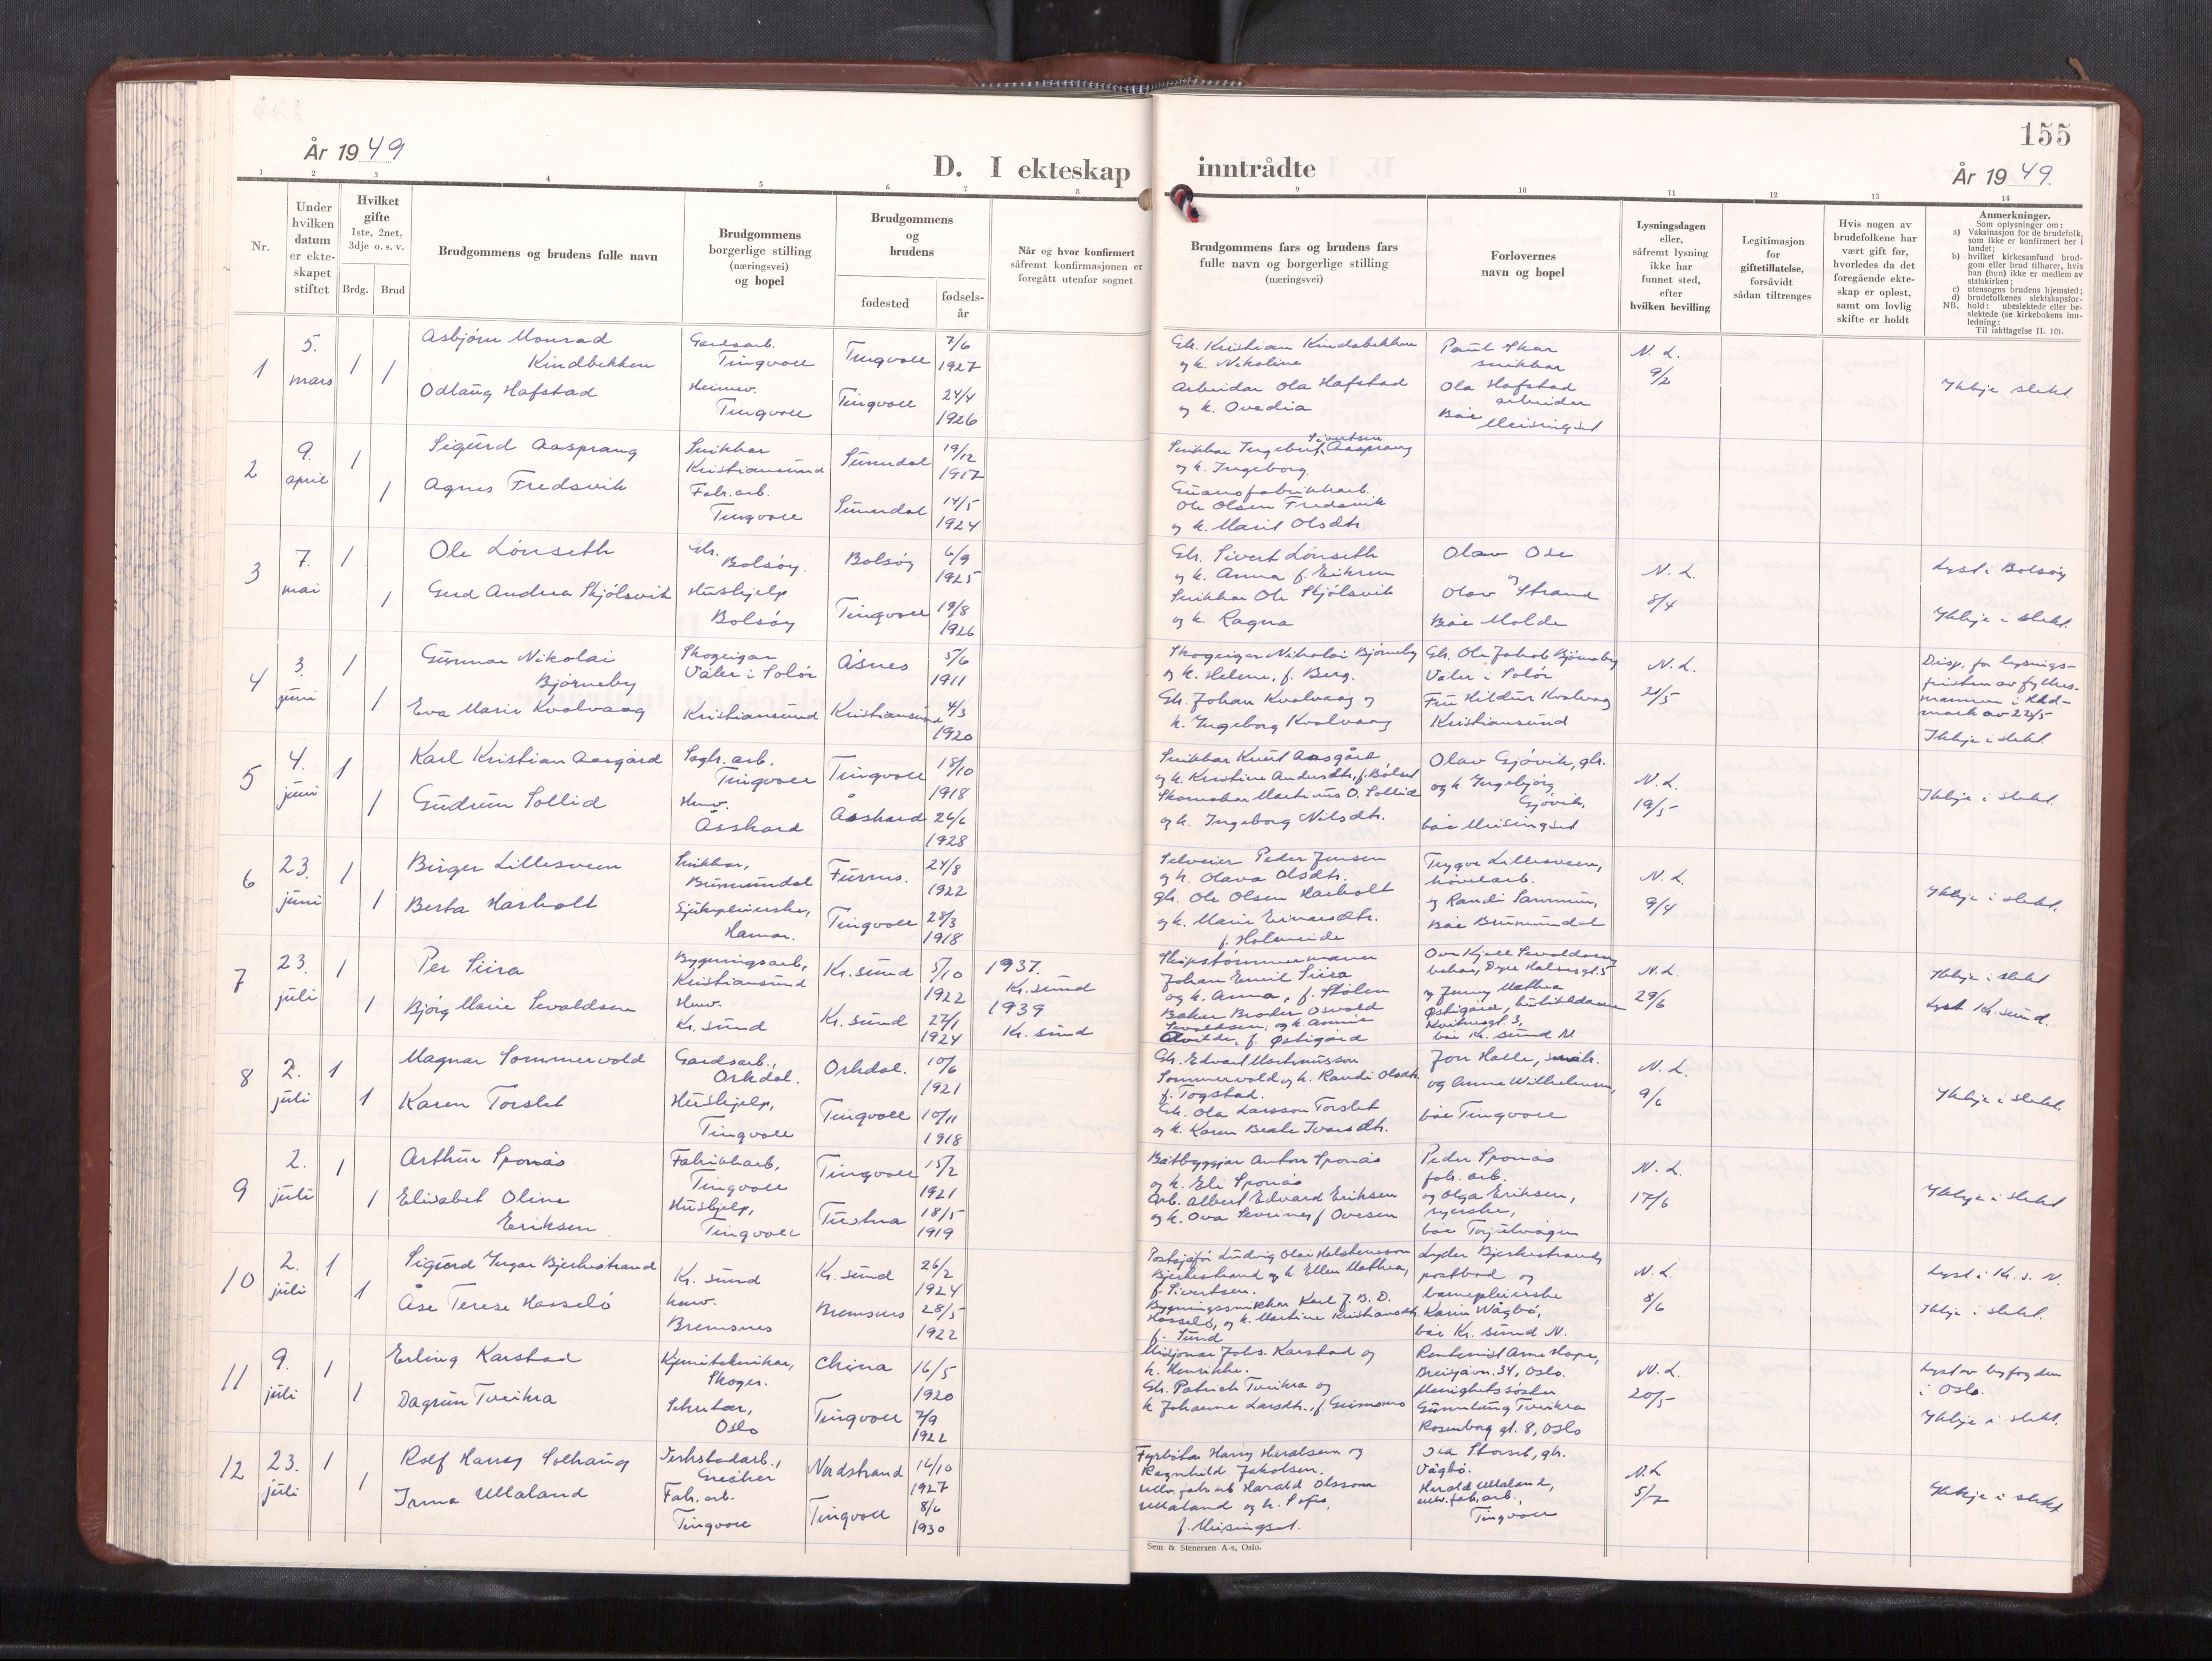 155
År 1949
År 1949.
D. I ekteskap inntrådte
1 2 3 4 5 6 7 8 9 10 11 12 13 14
Nr.
Under
hvilken
datum
er ekte-
skapet
stiftet
Hvilket
gifte
1ste, 2net,
3dje o. s. v.
Brdg. Brud
Brudgommens og brudens fulle navn
Brudgommens
borgerlige stilling
(næringsvei)
og bopel
Brudgommens
og
brudens
fødested
fødsels-
år
Når og hvor konfirmert
såfremt konfirmasjonen er
foregått utenfor sognet
Brudgommens fars og brudens fars
fulle navn og borgerlige stilling
(næringsvei)
Forlovernes
navn og bopel
Lysningsdagen
eller,
såfremt lysning
ikke har
funnet sted,
efter
hvilken bevilling
Legitimasjon
for
giftetillatelse,
forsåvidt
sådan tiltrenges
Hvis nogen av
brudefolkene har
vært gift før,
hvorledes da det
foregående ekte-
skap er opløst,
samt om lovlig
skifte er holdt
Anmerkninger.
Som oplysninger om:
a) Vaksinasjon for de brudefolk,
som ikke er konfirmert her i
landet;
b) hvilket kirkesamfund brud-
gom eller brud tilhører, hvis
han (hun) ikke er medlem av
statskirken;
c) utensogns brudens hjemsted;
d) brudefolkenes slektskapsfor-
hold: ubeslektede eller be-
slektede (se kirkebokens inn-
ledning:
NB.
Til iakttagelse II. 10).
1
5.
mars
1 1
Asbjørn Monrad
Kindbekken
Odlaug Hafstad
Gardsarb.
Tingvoll
Heimev.
Tingvoll
Tingvoll
Tingvoll
7/6
1927
24/4
1926
Gbr. Kristian Kindsbekken
og k. Nikoline
Arbeidar Ola Hafstad
og k. Ovedia
Paul Skar
snikkar
Ola Hafstad
arbeider
Bae Meisingset
N. L.
9/2
Ikkje slekt.
2
9.
april
1 1
Sigurd Aasprang
Agnes Fredsvik
Snikkar
Kristiansund
Fabr.arb.
Tingvoll
Sunndal
Sunndal
19/12
1917
14/5
1924
Sivertsen
Snikkar Ingebrigt Aasprang
og k. Ingeborg.
Guanofabrikkarb.
Ole Olsen Fredsvik
og k. Marit Olsdtr.
3
7.
mai
1 1
Ole Lönseth
Gerd Andrea Skjölsvik
Gbr.
Bolsöy.
Hushjelp
Bolsöy
Bolsöy
Tingvoll
6/9
1925
19/8
1926
Gbr. Sivert Lönseth
og k. Anna f. Eiksen
Snikkar Ole Skjölsvik
og k. Ragna
Olav Ose
og
Olav Strand
Bae Molde
N. L.
8/4
Lyst i Bolsöy
Ikkje i slekt.
4
3.
juni
1 1
Gunnar Nikolai
Bjørneby
Eva Marie Kvalvaag
Skogeigar
Våler i Solör
Kristiansund
Åsnes
Kristiansund
5/6
1911
4/3
1920
Skogeigar Nikolai Bjørneby
og k. Helene, f. Berg.
Gbr. Johan Kvalvaag og
k. Ingeborg Kvalvaag
Gbr. Ole Jakob Bjørneby
Våler i Solör
Fru Hildur Kvalvaag
Kristiansund
N. L.
21/5
Disp. for lysnings-
fristen av fylkes-
mannen i Hed-
mark av 22/5
Ikkje i slekt.
5
4.
juni
1 1
Karl Kristian Aasgård
Gudrun Sollid
Sagbr. arb.
Tingvoll
Heimv.
Åsskard
Tingvoll
Åsskard
18/10
1918
26/6
1928
Snikkar Knut Aasgård
og k. Kristine Andersdtr., f. Bölset
Skomakar Martinus O. Sollid
og k. Ingeborg Nilsdtr.
Olav Gjøvik, gbr.
og k. Ingebjörg
Gjövik,
bae Meisingset
N. L.
19/5
Ikkje i slekt.
6
23.
juni
1 1
Birger Lillesveen
Berta Harholt
Snikkar,
Brumunddal
Sjukepleierske,
Hamar.
Furnes.
Tingvoll
24/8
1922
28/3
1918
Selveier Peder Jensen
og k. Olava Olsdtr.
gbr. Ole Olsen Harholt
og k. Marie Einarsdtr.
f. Holmeide
Trygve Lillesveen,
hövelarb.
og Randi
Bae Brumunddal
N. L.
9/4
Ikkje i slekt.
7
23.
juli
1 1
Per Siira
Bjørg Marie Sevaldsen
Bygningsarb,
Kristiansund
Heimv.
Kr. sund
Kr. sund
Kr. sund
5/10
1922
27/1
1924
1937.
Kr. sund
1939
Kr. sund
Skipstømmermann
Johan Emil Siira
og k. Anna, f. Stölen
Baker Broder Osvald
Sevaldsen, og k. Annie
Alvilde, f. Østigård
Ove Kjell Sevaldsen
baker, Dyre Halsesgt. 5
og Jenny Mathea
Østigård,
bae Kr. sund N
N. L.
29/6
Ikkje i slekt
Lyst Kr. sund.
8
2.
juli
1 1
Magnar Sommervold
Karen Torslet
Gardsarb.,
Orkdal.
Hushjelp,
Tingvoll
Orkdal.
Tingvoll
10/6
1921
10/11
1918
Gbr. Edvart Martinusson
Sommervold og k. Randi Olsdtr.
f. Togstad.
Gbr. Ola Larsson Torslet
og k. Karen Beate Ivarsdtr.
Jon Halle, snik.
og Anne Wilhelmsen,
bae Tingvoll
N. L.
9/6
Ikkje i slekt.
9
2.
juli
1 1
Arthur Sponås
Elisabet Oline
Eriksen
Fabrikkarb,
Tingvoll
Hushjelp,
Tingvoll
Tingvoll
Tustna
15/2
1921
18/5
1919
Båtbyggjar Anton Sponås
og k. Eli Sponås
Arb. Albert Edvard Eriksen
og k. Ova Severine f. Ovesen
Peder Sponås
fab. arb.
og Olga Eriksen,
syerske,
bae Torjulvågen
N. L.
17/6
Ikkje i slekt
10
2.
juli
1 1
Sigurd Ingar Bjerkestrand
Åse Terese Hasselö
Kr. sund
heimv.
Bremsnes
Kr. sund
Bremsnes
26/2
1924
28/5
1922
Postsjåför Ludvig Olai Halstensson
Bjerkestrand og k. Ellen Mathea,
f. Sivertsen.
Bygningssnikkar Karl J. B. D.
Hasselö, og k. Martine Kristiansdtr.
f. Sund
Lyder Bjerkestrand,
postbod og
barnepleierske
Karin Vågbö,
bae Kr. sund N.
N. L.
8/6
Lyst i Kr. s. N.
Ikkje i slekt.
11
9.
juli
1 1
Erling Karstad
Dagrun Tveikra
Kjemitekniker,
Skoger.
Sekretær,
Oslo
China
Tingvoll
16/5
1920
7/9
1922
Misjonær Johs. Karstad og
k. Henrikke.
Gbr. Patrick Tveikra og
k. Johanne Larsdtr., f. Grimsmo
Rentenist Arne Hope,
34, Oslo.
Menighetssöster
Gunnlaug Tveikra
Rosenborg gt. 8, Oslo
N. L.
20/5
Lyst av byfogden
i Oslo.
Ikkje i slekt.
12
23.
juli
1 1
Rolf Harry Solhaug
Irma Ullaland
Verkstadarb.,
Greåker
Fabr. arb.
Tingvoll
Nordstrand
Tingvoll
14/10
1927
8/6
1930
Fyrbøter Harry Heraldsen og
Ragnhild Jakobsen.
Ullv. fabr. arb Harald Olsson
Ullaland og k. Sofie,
f. Meisingset.
Ola Storset, gbr.
Vågbö.
Harald Ullaland,
ullv. fab. arb.,
Tingvoll
N. L
5/7
Ikkje i slekt
Sem & Stenersen A-s, Oslo.